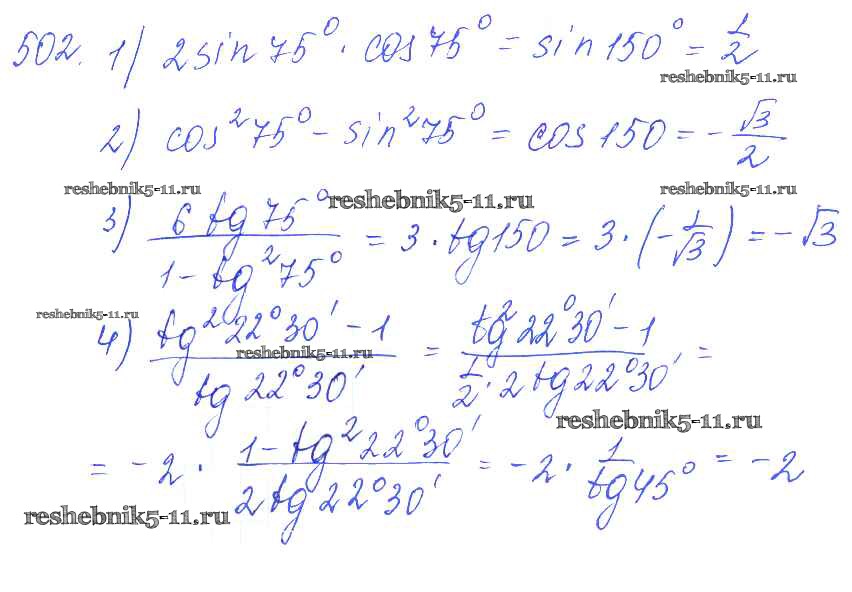 502. 1) 2sin75°·cos75° = sin150° = 1/2
reshebnik5-11.ru
2) cos²75° - sin²75° = cos150 = -√3/2
reshebnik5-11.ru reshebnik5-11.ru reshebnik5-11.ru
3) 6tg75°/1-tg²75° = 3·tg150 = 3·(-1/√3) = -√3
reshebnik5-11.ru
4) tg²22°30'-1/tg22°30' = tg²22°30'-1/1/2·2tg22°30' =
reshebnik5-11.ru
reshebnik5-11.ru
= -2·1-tg²22°30'/2tg22°30' = -2·1/tg45° = -2
reshebnik5-11.ru